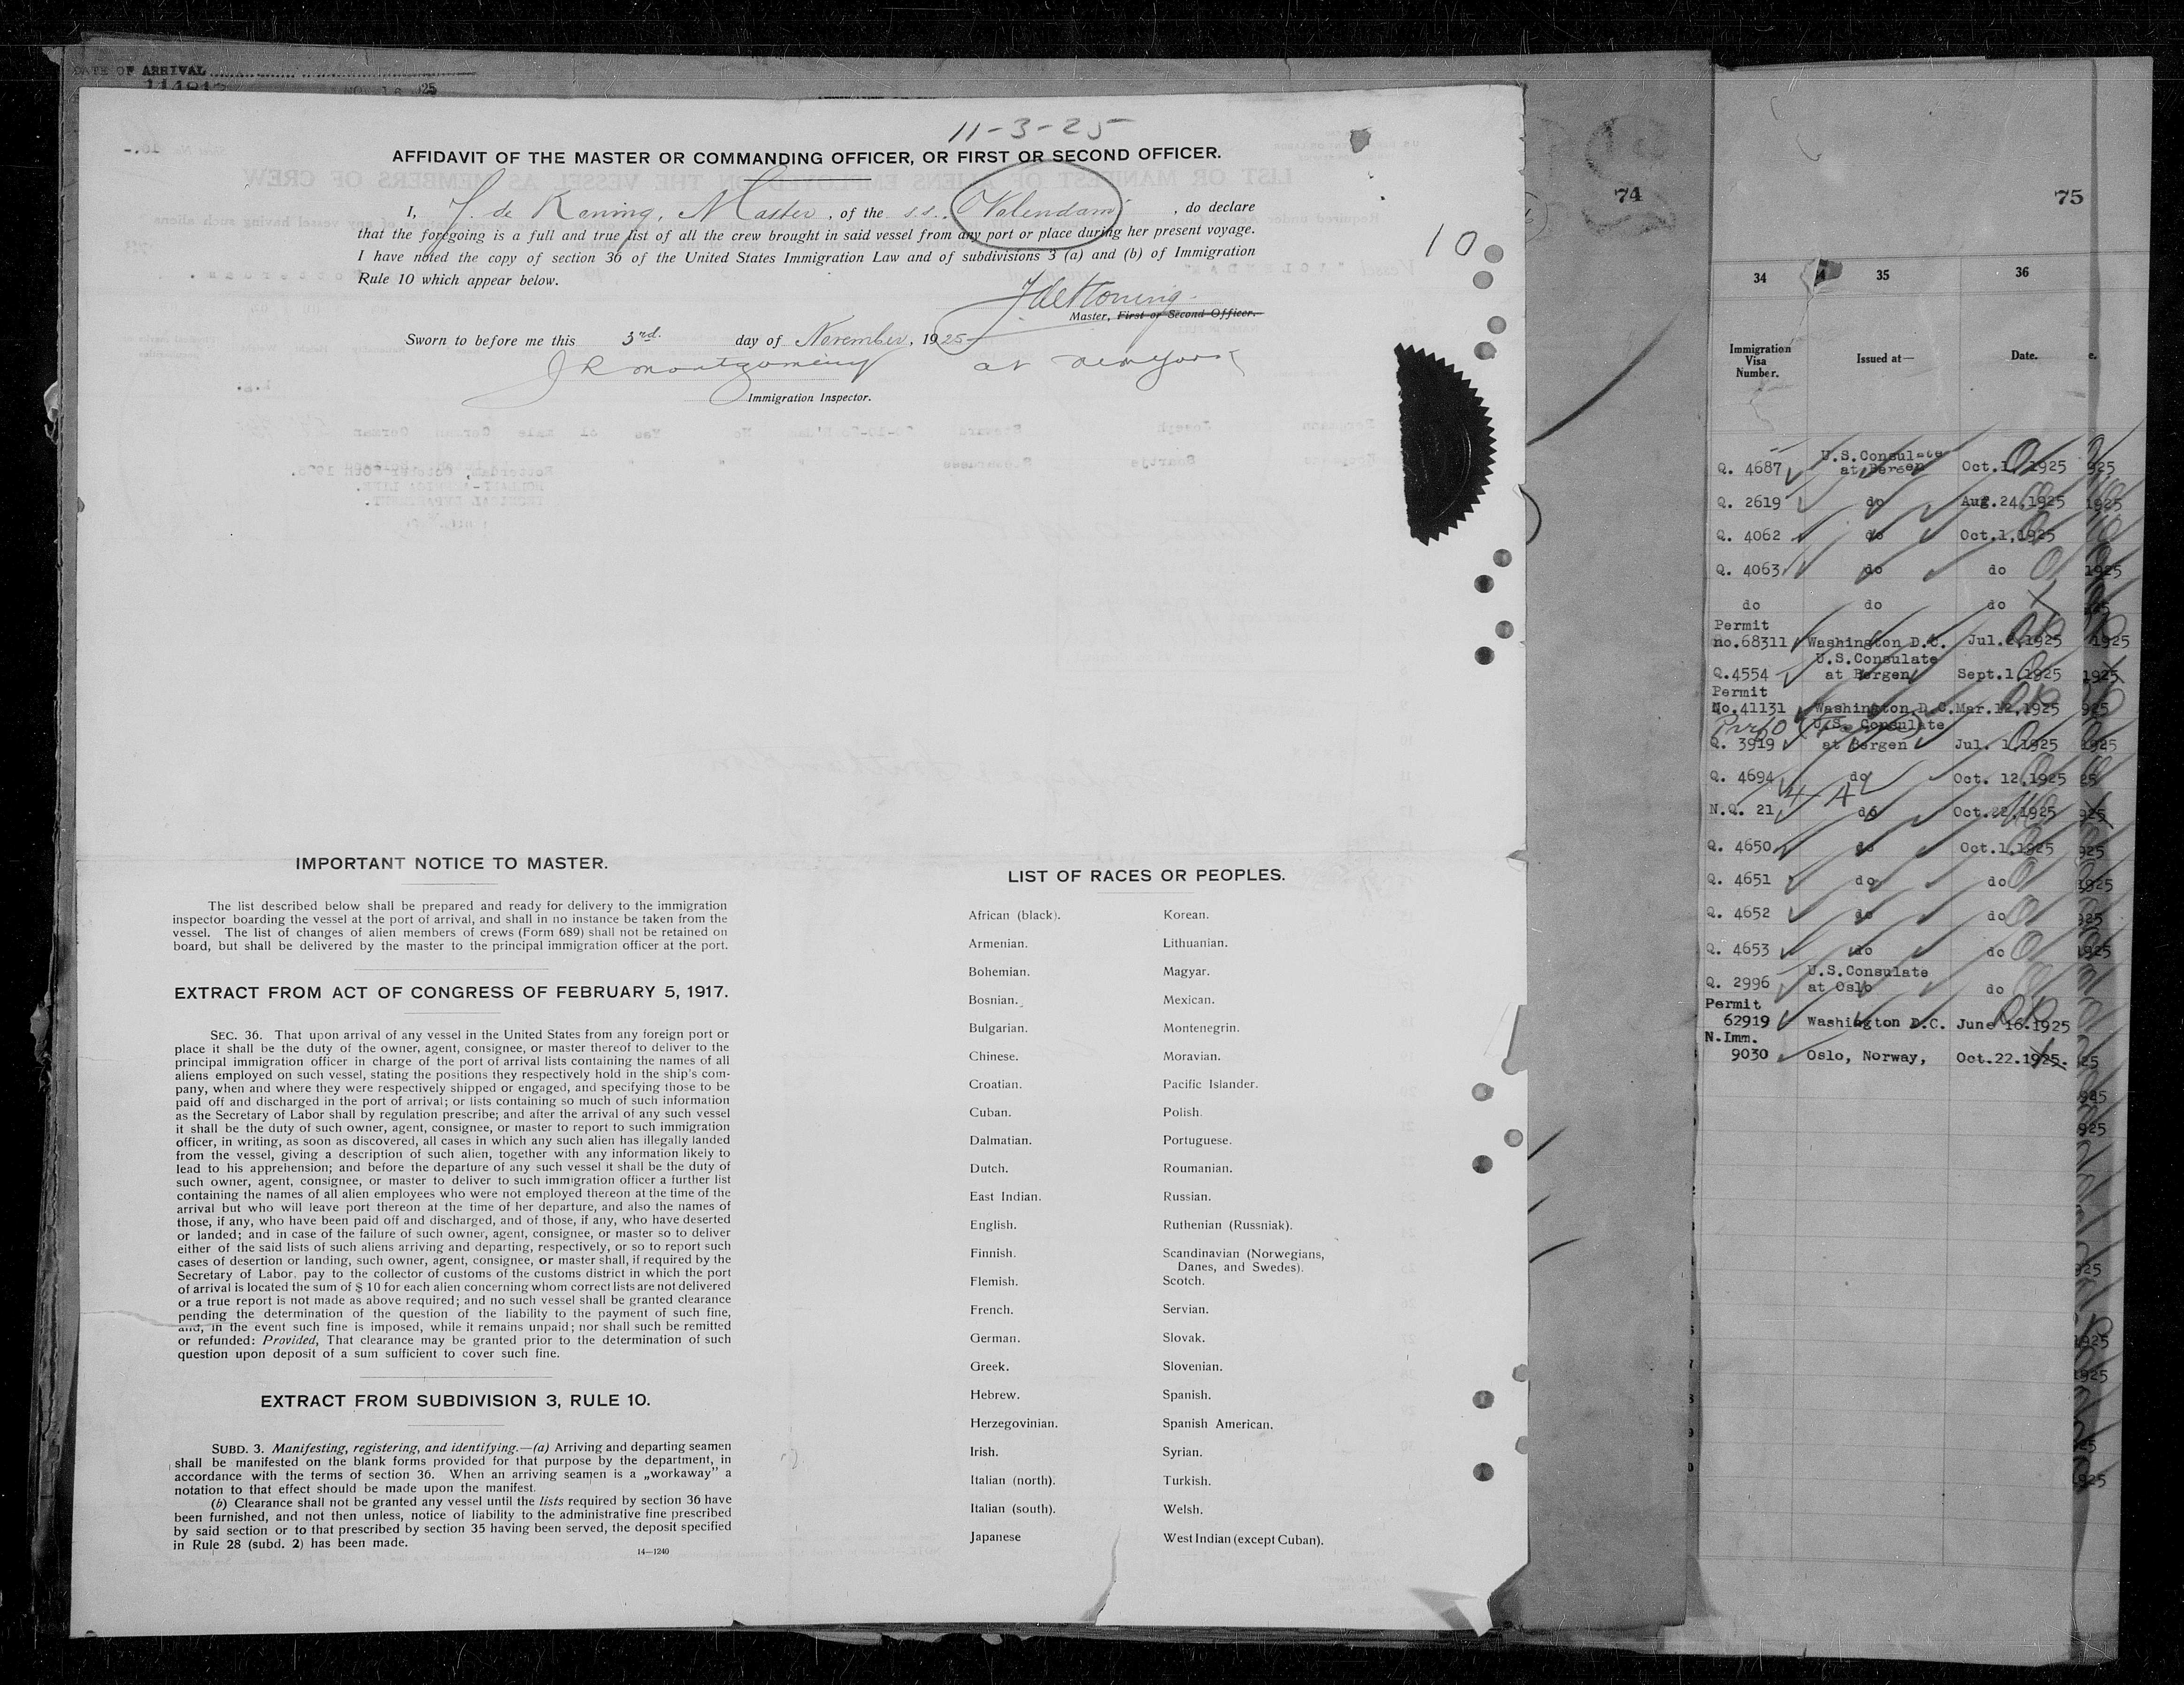 DATE OF ARRIVAL
11-3-25
AFFIDAVIT OF THE MASTER OR COMMANDING OFFICER, OR FIRST OR SECOND OFFICER.
I, J. de Koning, Master, of the s.s. Volendam, do declare
that the foregoing is a full and true list of all the crew brought in said vessel from any port or place during her present voyage.
I have noted the copy of section 36 of the United States Immigration Law and of subdivisions 3 (a) and (b) of Immigration
Rule 10 which appear below.
10
J de Koning
Master, First or Second Officer.
Sworn to before me this 3rd. day of November, 1925
J R Montgomery at New York
Immigration Inspector.
IMPORTANT NOTICE TO MASTER.
The list described below shall be prepared and ready for delivery to the immigration
inspector boarding the vessel at the port of arrival, and shall in no instance be taken from the
vessel. The list of changes of alien members of crews (Form 689) shall not be retained on
board, but shall be delivered by the master to the principal immigration officer at the port.
EXTRACT FROM ACT OF CONGRESS OF FEBRUARY 5, 1917.
SEC. 36. That upon arrival of any vessel in the United States from any foreign port or
place it shall be the duty of the owner, agent, consignee, or master thereof to deliver to the
principal immigration officer in charge of the port of arrival lists containing the names of all
aliens employed on such vessel, stating the positions they respectively hold in the ship's com-
pany, when and where they were respectively shipped or engaged, and specifying those to be
paid off and discharged in the port of arrival; or lists containing so much of such information
as the Secretary of Labor shall by regulation prescribe; and after the arrival of any such vessel
it shall be the duty of such owner, agent, consignee, or master to report to such immigration
officer, in writing, as soon as discovered, all cases in which any such alien has illegally landed
from the vessel, giving a description of such alien, together with any information likely to
lead to his apprehension; and before the departure of any such vessel it shall be the duty of
such owner, agent, consignee, or master to deliver to such immigration officer a further list
containing the names of all alien employees who were not employed thereon at the time of the
arrival but who will leave port thereon at the time of her departure, and also the names of
those, if any, who have been paid off and discharged, and of those, if any, who have deserted
or landed; and in case of the failure of such owner, agent, consignee, or master so to deliver
either of the said lists of such aliens arriving and departing, respectively, or so to report such
cases of desertion or landing, such owner, agent, consignee, or master shall, if required by the
Secretary of Labor, pay to the collector of customs of the customs district in which the port
of arrival is located the sum of $ 10 for each alien concerning whom correct lists are not delivered
or a true report is not made as above required; and no such vessel shall be granted clearance
pending the determination of the question of the liability to the payment of such fine,
and, in the event such fine is imposed, while it remains unpaid; nor shall such be remitted
or refunded: Provided, That clearance may be granted prior to the determination of such
question upon deposit of a sum sufficient to cover such fine.
EXTRACT FROM SUBDIVISION 3, RULE 10.
SUBD. 3. Manifesting, registering, and identifying.—(a) Arriving and departing seamen
shall be manifested on the blank forms provided for that purpose by the department, in
accordance with the terms of section 36. When an arriving seamen is a „workaway" a
notation to that effect should be made upon the manifest.
(b) Clearance shall not be granted any vessel until the lists required by section 36 have
been furnished, and not then unless, notice of liability to the administrative fine prescribed
by said section or to that prescribed by section 35 having been served, the deposit specified
in Rule 28 (subd. 2) has been made.
14—1240
LIST OF RACES OR PEOPLES.
African (black). Korean.
Armenian. Lithuanian.
Bohemian. Magyar.
Bosnian. Mexican.
Bulgarian. Montenegrin.
Chinese. Moravian.
Croatian. Pacific Islander.
Cuban. Polish.
Dalmatian. Portuguese.
Dutch. Roumanian.
East Indian. Russian.
English. Ruthenian (Russniak).
Finnish. Scandinavian (Norwegians,
Danes, and Swedes).
Flemish. Scotch.
French. Servian.
German. Slovak.
Greek. Slovenian.
Hebrew. Spanish.
Herzegovinian. Spanish American.
Irish. Syrian.
Italian (north). Turkish.
Italian (south). Welsh.
Japanese West Indian (except Cuban).
74
75
34 35 36
Immigration
Visa
Number.
Issued at—
Date.
Q. 4687 U.S.Consulate at Bergen Oct.1, 1925
Q. 2619 do Aug.24,1925
Q. 4062 do Oct.1,1925
Q. 4063 do do
do do do
Permit
no.68311 Washington D.C. Jul.2,1925
Q.4554 U.S.Consulate at Bergen Sept.1,1925
Permit
No.41131 Washington D.C. Mar.12,1925
Q. 3919 U.S. Consulate at Bergen Jul. 1,1925
Q. 4694 do Oct. 12,1925
N.Q. 21 do Oct.22,1925
Q. 4650 do Oct.1,1925
Q. 4651 do do
Q. 4652 do do
Q. 4653 do do
Q. 2996 U.S.Consulate at Oslo do
Permit
62919 Washington D.C. June 16.1925
N.Imm.
9030 Oslo, Norway, Oct.22.1925.